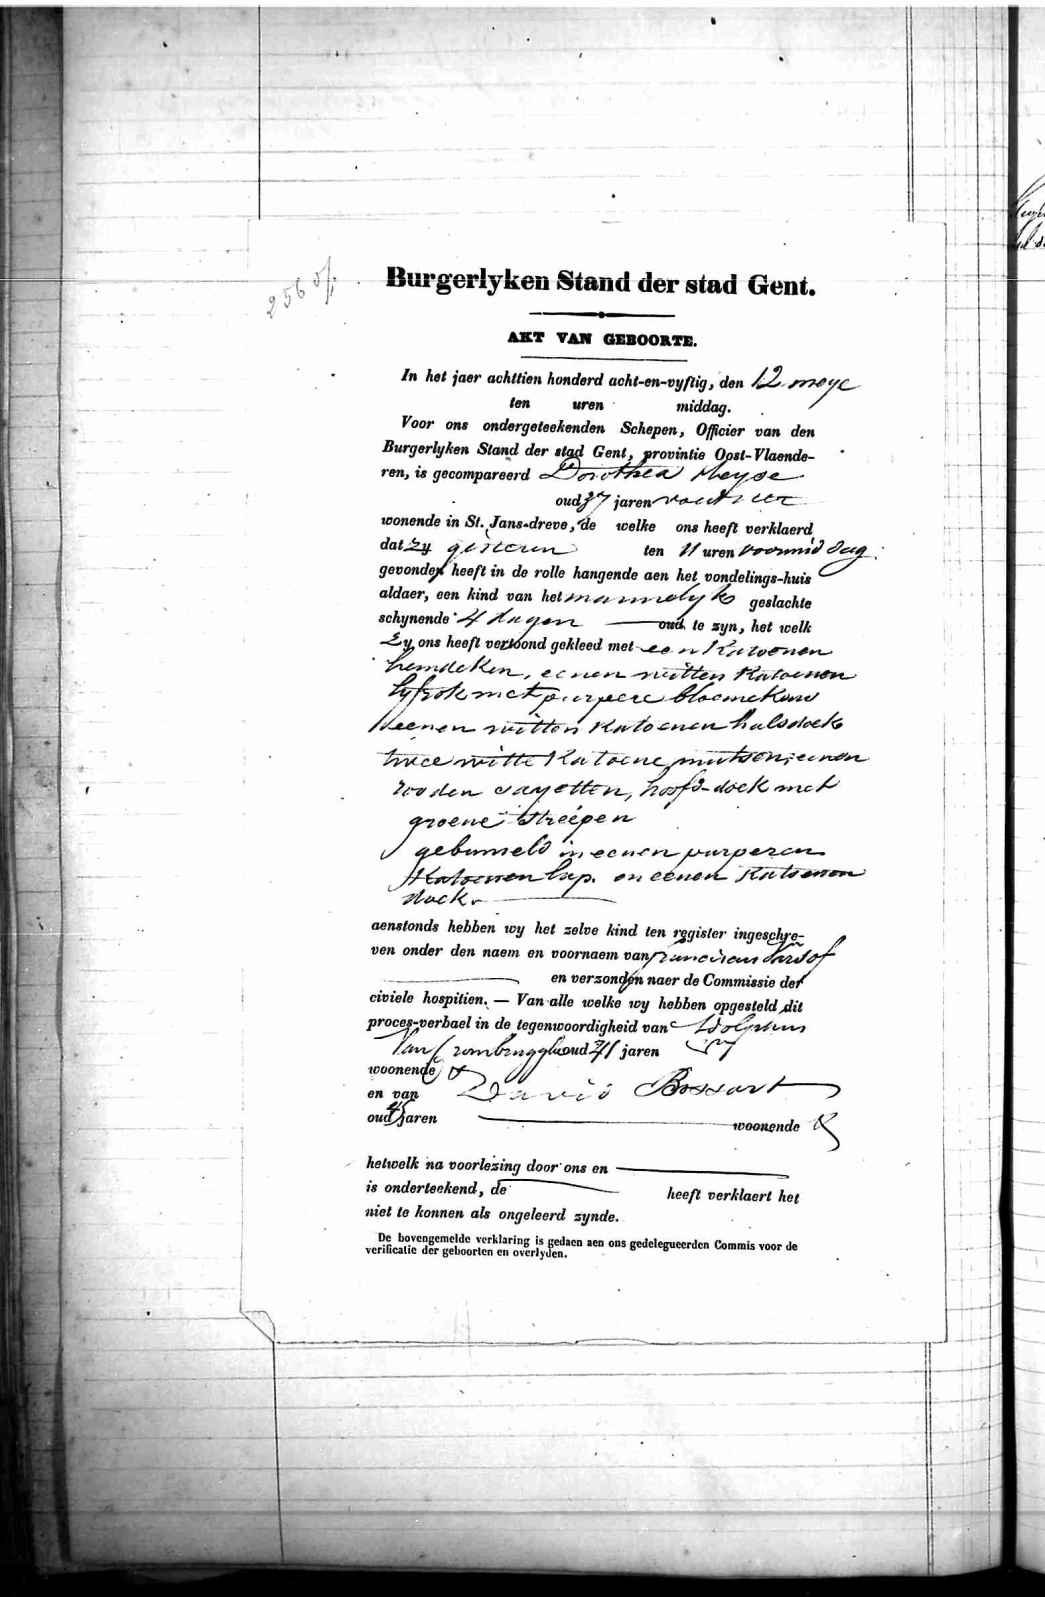 2565/1
Burgerlyken Stand der stad Gent.
AKT VAN GEBOORTE.
In het jaer achttien honderd acht-en-vyftig, den 12 meye
ten uren middag.
Voor ons ondergeteekenden Schepen, Officier van den
Burgerlyken Stand der stad Gent, provintie Oost-Vlaende-
ren, is gecompareerd Dorothea Heyse
oud 37 jaren
wonende in St. Jans-dreve, de welke ons heeft verklaerd
dat zy gisteren ten 11 uren voormiddag
gevonden heeft in de rolle hangende aen het vondelings-huis
aldaer, een kind van het mannelyk geslachte
schynende 4 dagen oud te zyn, het welk
Zy ons heeft vertoond gekleed met een Katoenen
hemdeken, eenen witten Katoenen
lyfrok met purpere bloemekens
eenen witten Katoenen halsdoek
twee witte Katoene mutsen, eenen
rooden sayetten, hoofd-doek met
groene streepen
gebunseld in eenen purperen
Katoenen lap. en eenen Katoenen
doek.
aenstonds hebben wy het zelve kind ten register ingeschre-
ven onder den naem en voornaem van Franciscus
en verzonden naer de Commissie der
civiele hospitien. — Van alle welke wy hebben opgesteld dit
proces-verbael in de tegenwoordigheid van Adolphus
Van Crombrugghe oud 41 jaren
woonende
en van David Bossaert
oud jaren woonende
hetwelk na voorlezing door ons en
is onderteekend, de heeft verklaert het
niet te konnen als ongeleerd zynde.
De bovengemelde verklaring is gedaen aen ons gedelegueerden Commis voor de
verificatie der geboorten en overlyden.